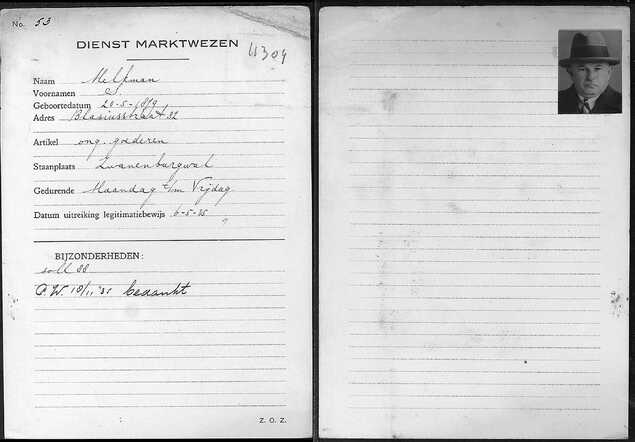 No. 53
DIENST MARKTWEZEN
Naam Melkman
Voornamen S
Geboortedatum 20-5-1879
Adres Blasiusstraat 32
Artikel ong. goederen
Staanplaats Zwanenburgwal
Gedurende Maandag t/m Vrijdag
Datum uitreiking legitimatiebewijs 6-5-35
BIJZONDERHEDEN:
soll 38
bedankt
Z. O. Z.